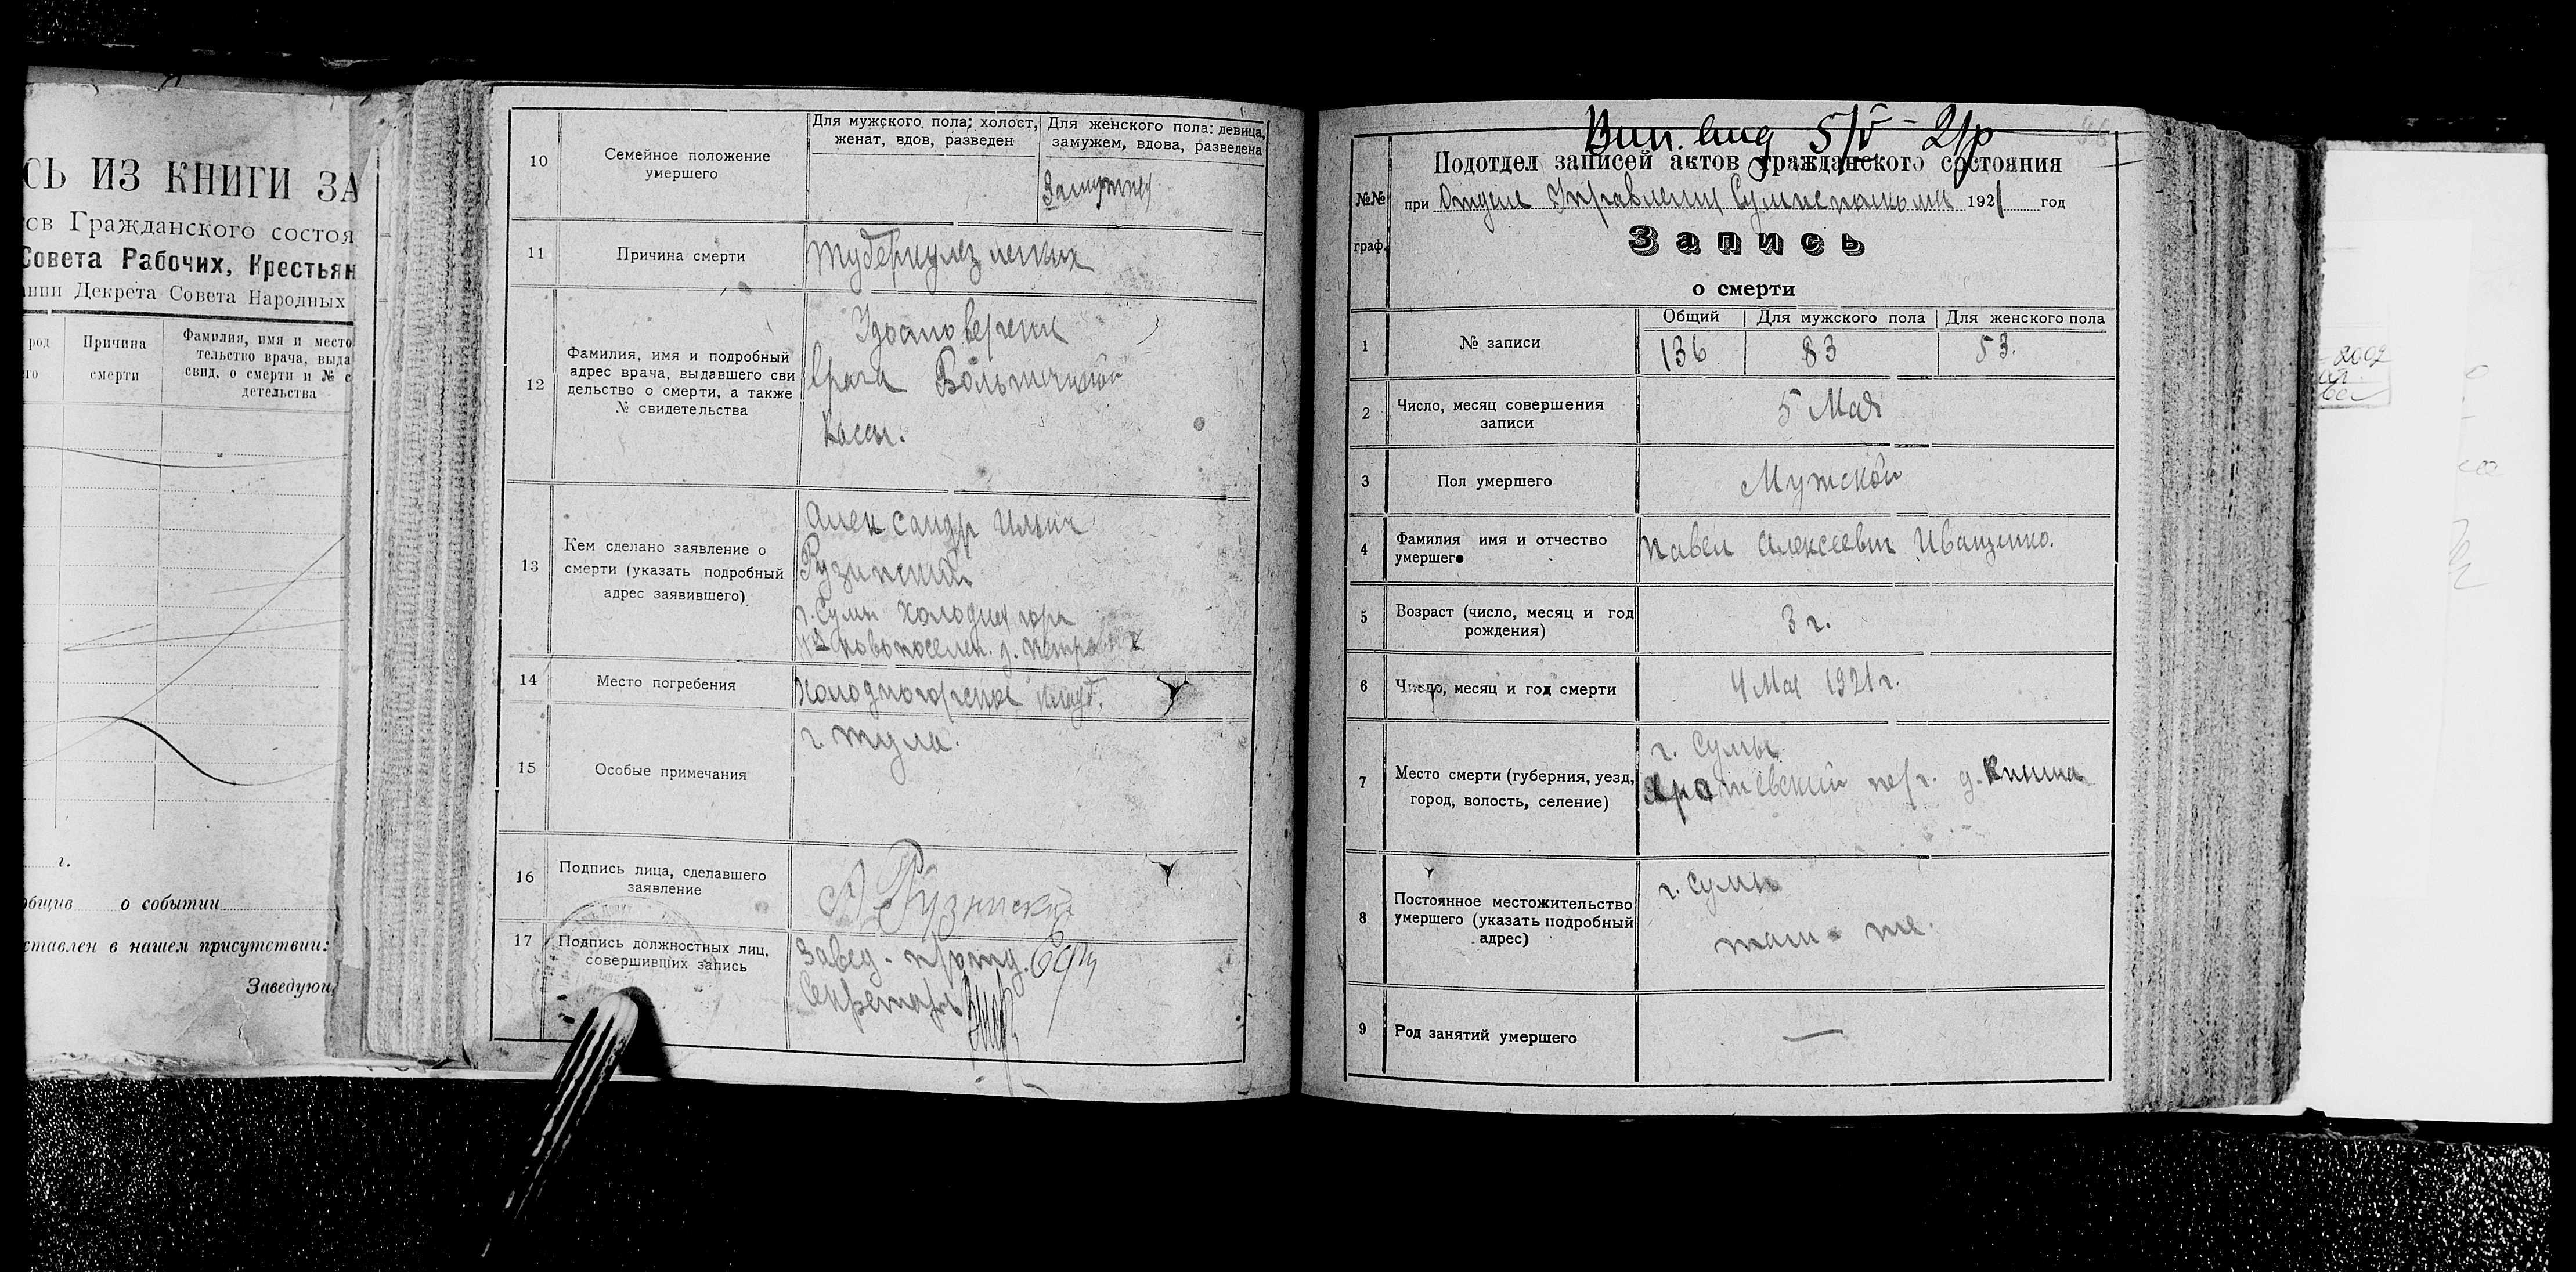 СЬ ИЗ КНИГИ ЗА
ов Гражданского состоя
Совета Рабочих, Крестьян
нии Декрета Совета Народных
род
го
Причина
смерти
Фамилия, имя и место
тельство врача, выда
свид. о смерти и № с
детельства
г.
общив о событии
ставлен в нашем присутствии:
Заведующ
10
Семейное положение
умершего
Для мужского пола: холост,
женат, вдов, разведен
Для женского пола: девица,
замужем, вдова, разведена
Замужняя
11
Причина смерти
туберкулез легких
12
Фамилия, имя и подробный
адрес врача, выдавшего сви
дельство о смерти, а также
№ свидетельства
Удостоверение
врача Больничной
Кассы.
13
Кем сделано заявление о
смерти (указать подробный
адрес заявившего)
Александр Ильич
Рузинский
г. Сумы Холодная гора
новоселен. д.
14
Место погребения
Холодногорское кладб.
15
Особые примечания
г. Тула.
16
Подпись лица, сделавшего
заявление
А Рузинский
17
Подпись должностных лиц,
совершивших запись
Завед. п/отд.
Секретарь
5/V - 21
Подотдел записей актов гражданского состояния
№№
граф.
при Отделе Управления Сумисполкома 1921 год
Запись
о смерти
1
№ записи
Общий
Для мужского пола
Для женского пола
136
83
53.
2
Число, месяц совершения
записи
5 Мая
3
Пол умершего
Мужской
4
Фамилия имя и отчество
умершего
Павел Алексеевич Иващенко.
5
Возраст (число, месяц и год
рождения)
3 г.
6
Число, месяц и год смерти
4 Мая 1921 г.
7
Место смерти (губерния, уезд,
город, волость, селение)
г. Сумы
пер. д.
8
Постоянное местожительство
умершего (указать подробный
адрес)
г. Сумы
там же.
9
Род занятий умершего
—
2002